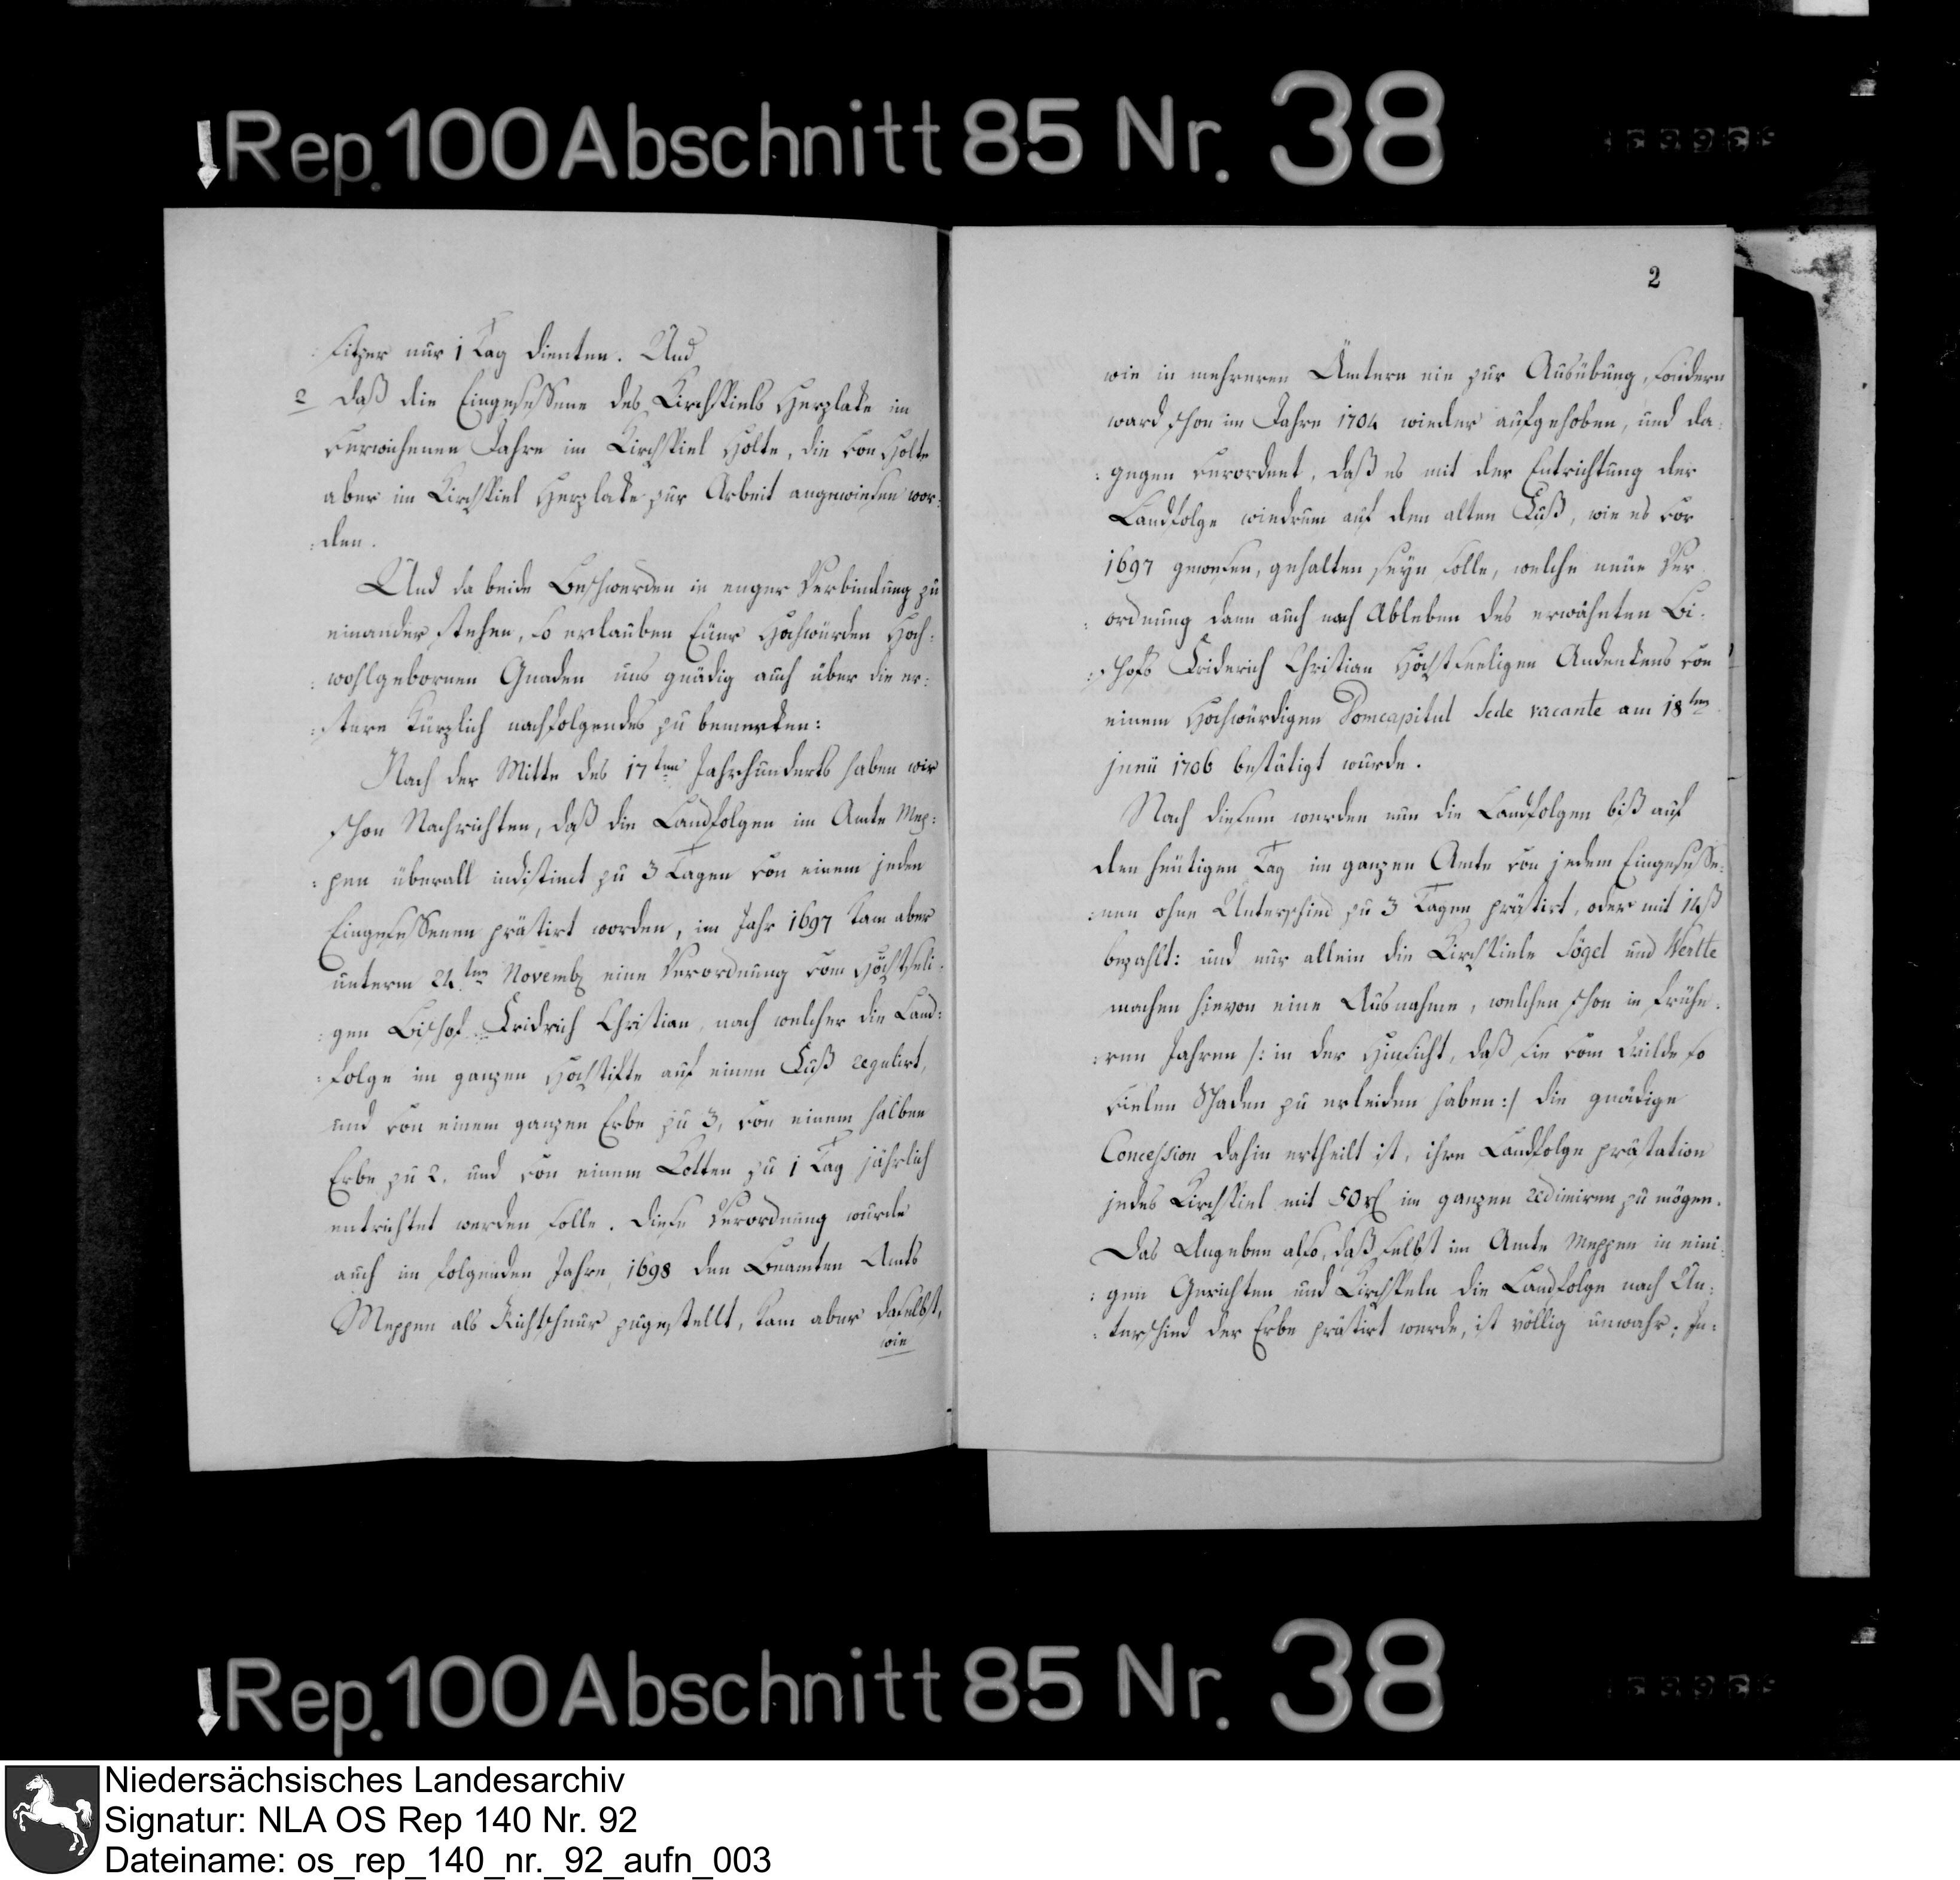 Rep. 100 Abschnitt 85 Nr. 38
sitzer nur 1 Tag dienten. Und
2 daß die Eingesessene des Kirchspiels Herzlake im
verwichenen Jahre im Kirchspiel Holte, die von Holte
aber im Kirchspiel Herzlake zur Arbeit angewiesen wor:
:den.
Und da beide Beschwerden in enger Verbindung zu
einander stehen, so erlauben Euer Hochwürden Hoch:
:wohlgebornen Gnaden uns gnädig auch über die er:
:stere kürzlich nachfolgendes zu bemerken:
Nach der Mitte des 17ten Jahrhunderts haben wir
schon Nachrichten, daß die Landfolgen im Amte Mep:
:pen überall indistinct zu 3 Tagen von einem jeden
Eingesessenen prästirt worden, im Jahr 1697 kam aber
unterm 24ten Novemb eine Verordnung vom Höchstseli:
:gen Bischof Fridrich Christian, nach welcher die Land:
:folge im ganzen Hochstifte auf einen Fuß regulirt,
und von einem ganzen Erbe zu 3, von einem halben
Erbe zu 2. und von einem Kotten zu 1 Tag jährlich
entrichtet werden solle. Diese Verordnung wurde
auch im folgenden Jahre 1698 den Beamten Amts
Meppen als Richtschnur zugestellt, kam aber daselbst,
wie
2
wie in mehreren Ämtern nie zur Ausübung, sondern
ward schon im Jahre 1704 wieder aufgehoben, und da:
:gegen verordnet, daß es mit der Entrichtung der
Landfolge wiedrum auf den alten Fuß, wie es vor
1697 gewesen, gehalten seyn solle, welche neue Ver
:ordnung dann auch nach Ableben des erwähnten Bi:
:schofs Friderich Christian Höchstseeligen Andenkens von
einem Hochwürdigen Domcapitul Sede vacante am 18ten
junii 1706 bestätigt wurde.
Nach diesem werden nun die Landfolgen biß auf
den heutigen Tag im ganzen Amte von jedem Eingesesse:
:nen ohne Unterschied zu 3 Tagen prästirt, oder mit 14ß
bezahlt: und nur allein die Kirchspiele Sögel und Werlte
machen hievon eine Ausnahme, welchen schon in frühe:
:ren Jahren /: in der Hinsicht, daß sie vom Wilde so
vielen Schaden zu erleiden haben :/ die gnädige
Concession dahin ertheilt ist, ihre Landfolge prästation
jedes Kirchspiel mit 50 im ganzen redimiren zu mögen.
Das Angeben also, daß selbst im Amte Meppen in eini:
:gen Gerichten und Kirchspieln die Landfolge nach Un:
:terschied der Erbe prästirt werde, ist völlig unwahr; In:
Rep. 100 Abschnitt 85 Nr. 38
Niedersächsisches Landesarchiv
Signatur: NLA OS Rep 140 Nr. 92
Dateiname: os_rep_140_nr._92_aufn_003